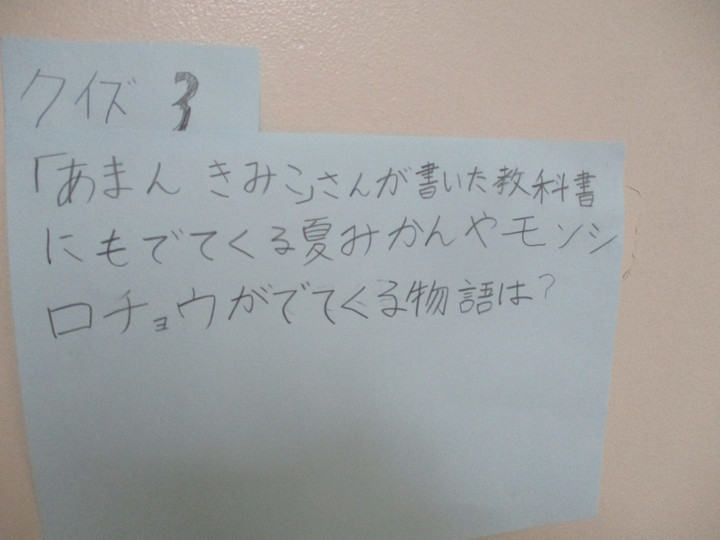 クイズ 3
「あまん きみこさんが書いた教科書
にもでてくる夏みかんやモンシ
ロチョウがでてくる物語は?